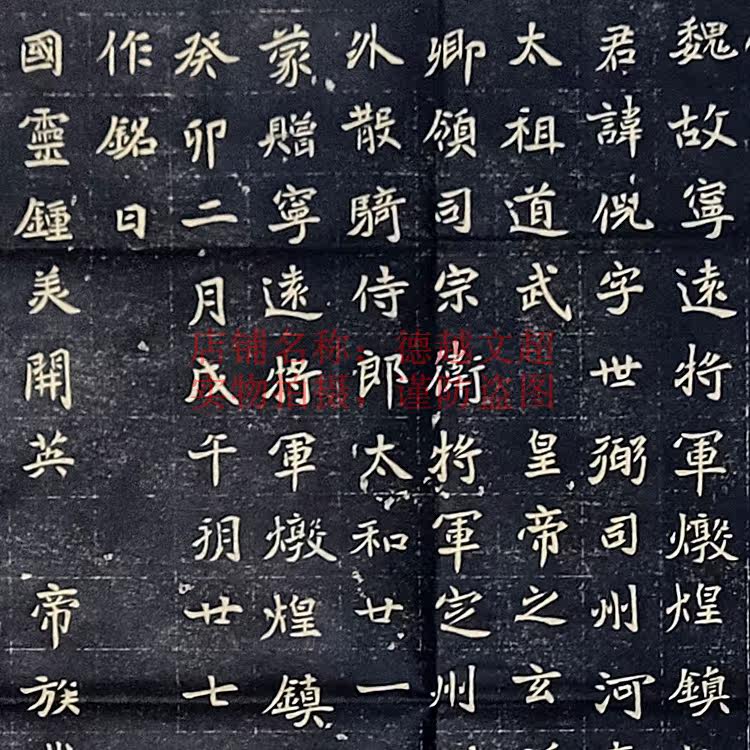 魏故寧遠將軍燉煌鎮
君諱倪字世弼司州河
太祖道武皇帝之玄
卿領司宗衛將軍定州
外散騎侍郎太和廿一
蒙贈寧遠將軍燉煌鎮
癸卯二月戊午朔廿七
作銘曰
國靈鍾美開英帝族
店铺名称：德越文超
实物拍摄，谨防盗图